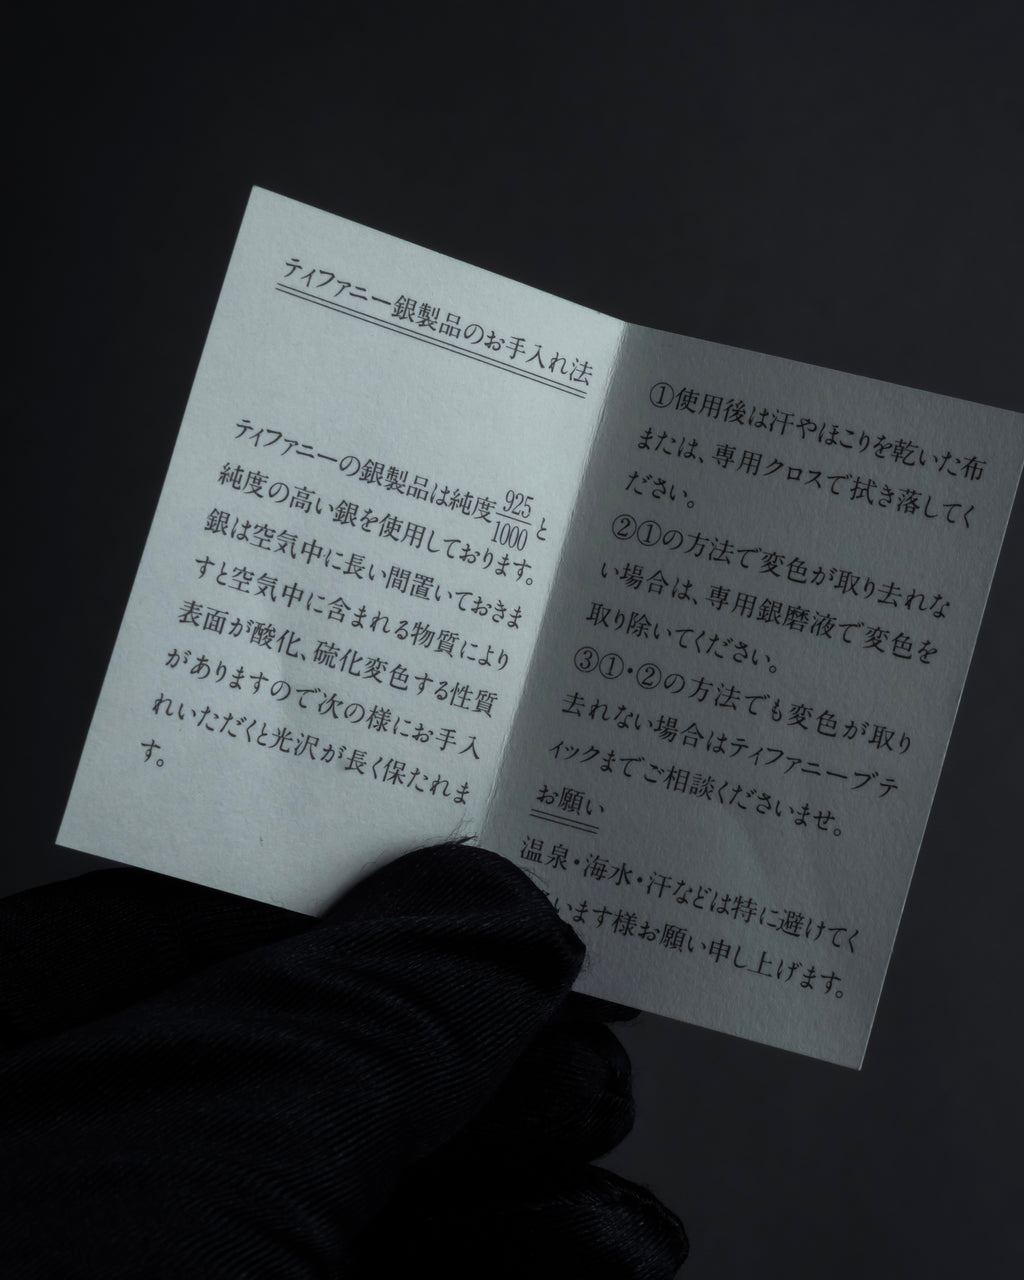 ティファニー銀製品のお手入れ法
ティファニーの銀製品は純度925/1000と
純度の高い銀を使用しております。
銀は空気中に長い間置いておきま
すと空気中に含まれる物質により
表面が酸化、硫化変色する性質
がありますので次の様にお手入
れいただくと光沢が長く保たれま
す。
①使用後は汗やほこりを乾いた布
または、専用クロスで拭き落してく
ださい。
②①の方法で変色が取り去れな
い場合は、専用銀磨液で変色を
取り除いてください。
③①・②の方法でも変色が取り
去れない場合はティファニーブテ
ィックまでご相談くださいませ。
お願い
温泉・海水・汗などは特に避けてく
います様お願い申し上げます。